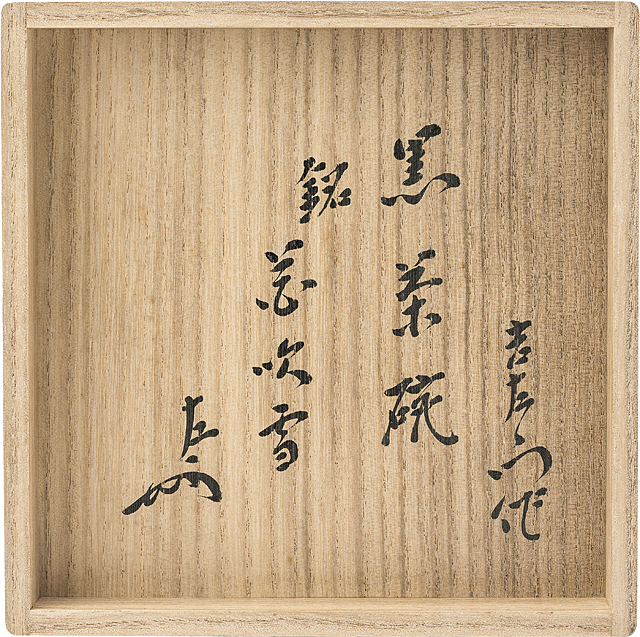 吉左衛門作
黒茶碗
銘
花吹雪
左